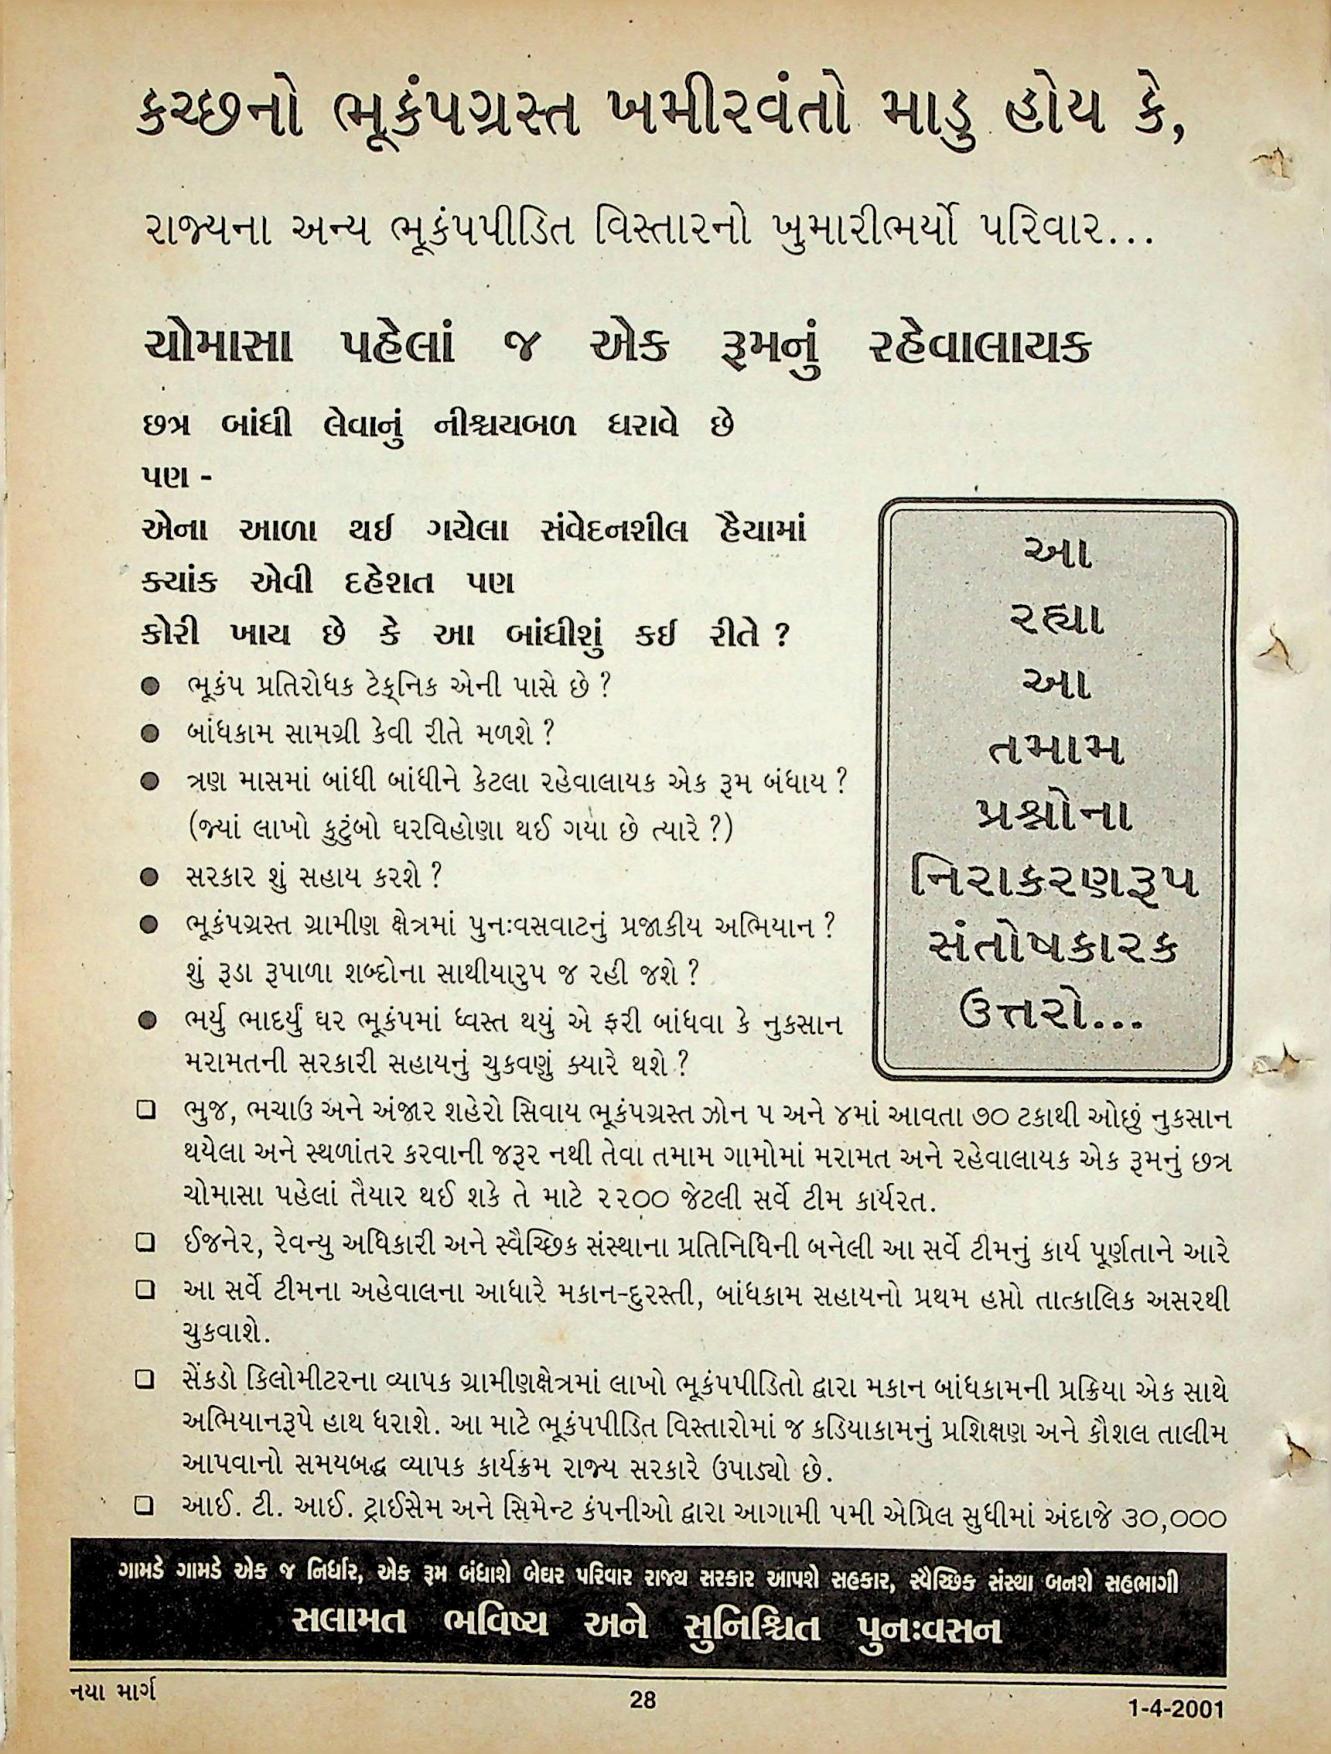 કચ્છનો ભૂકંપગ્રસ્ત ખમીરવંતો માડુ હોય કે,
રાજ્યના અન્ય ભૂકંપપીડિત વિસ્તારનો ખુમારીભર્યો પરિવાર...
ચોમાસા પહેલાં જ એક રૂમનું રહેવાલાયક
છત્ર બાંધી લેવાનું નીશ્ચયબળ ધરાવે છે
પણ -
એના આળા થઈ ગયેલા સંવેદનશીલ હૈયામાં
ક્યાંક એવી દહેશત પણ
કોરી ખાય છે કે આ બાંધીશું કઈ રીતે ?
● ભૂકંપ પ્રતિરોધક ટેક્‌નિક એની પાસે છે ?
● બાંધકામ સામગ્રી કેવી રીતે મળશે ?
● ત્રણ માસમાં બાંધી બાંધીને કેટલા રહેવાલાયક એક રૂમ બંધાય ?
(જ્યાં લાખો કુટુંબો ઘરવિહોણા થઈ ગયા છે ત્યારે ?)
● સરકાર શું સહાય કરશે ?
● ભૂકંપગ્રસ્ત ગ્રામીણ ક્ષેત્રમાં પુનઃવસવાટનું પ્રજાકીય અભિયાન ?
શું રૂડા રૂપાળા શબ્દોના સાથીયારુપ જ રહી જશે ?
● ભર્યુ ભાદર્યું ઘર ભૂકંપમાં ધ્વસ્ત થયું એ ફરી બાંધવા કે નુકસાન
મરામતની સરકારી સહાયનું ચુકવણું ક્યારે થશે ?
આ
રહ્યા
આ
તમામ
પ્રશ્નોના
નિરાકરણરૂપ
સંતોષકારક
ઉત્તરો...
❑ ભુજ, ભચાઉ અને અંજાર શહેરો સિવાય ભૂકંપગ્રસ્ત ઝોન ૫ અને ૪માં આવતા ૭૦ ટકાથી ઓછું નુકસાન
થયેલા અને સ્થળાંતર કરવાની જરૂર નથી તેવા તમામ ગામોમાં મરામત અને રહેવાલાયક એક રૂમનું છત્ર
ચોમાસા પહેલાં તૈયાર થઈ શકે તે માટે ૨૨૦૦ જેટલી સર્વે ટીમ કાર્યરત.
❑ ઈજનેર, રેવન્યુ અધિકારી અને સ્વૈચ્છિક સંસ્થાના પ્રતિનિધિની બનેલી આ સર્વે ટીમનું કાર્ય પૂર્ણતાને આરે
❑ આ સર્વે ટીમના અહેવાલના આધારે મકાન-દુરસ્તી, બાંધકામ સહાયનો પ્રથમ હપ્તો તાત્કાલિક અસરથી
ચુકવાશે.
❑ સેંકડો કિલોમીટરના વ્યાપક ગ્રામીણક્ષેત્રમાં લાખો ભૂકંપપીડિતો દ્વારા મકાન બાંધકામની પ્રક્રિયા એક સાથે
અભિયાનરૂપે હાથ ધરાશે. આ માટે ભૂકંપપીડિત વિસ્તારોમાં જ કડિયાકામનું પ્રશિક્ષણ અને કૌશલ તાલીમ
આપવાનો સમયબદ્ધ વ્યાપક કાર્યક્રમ રાજ્ય સરકારે ઉપાડ્યો છે.
❑ આઈ. ટી. આઈ. ટ્રાઈસેમ અને સિમેન્ટ કંપનીઓ દ્વારા આગામી ૫મી એપ્રિલ સુધીમાં અંદાજે ૩૦,૦૦૦
ગામડે ગામડે એક જ નિર્ધાર, એક રૂમ બંધાશે બેઘર પરિવાર રાજ્ય સરકાર આપશે સહકાર, સ્વૈચ્છિક સંસ્થા બનશે સહભાગી
સલામત ભવિષ્ય અને સુનિશ્ચિત પુનઃવસન
નયા માર્ગ
28
1-4-2001